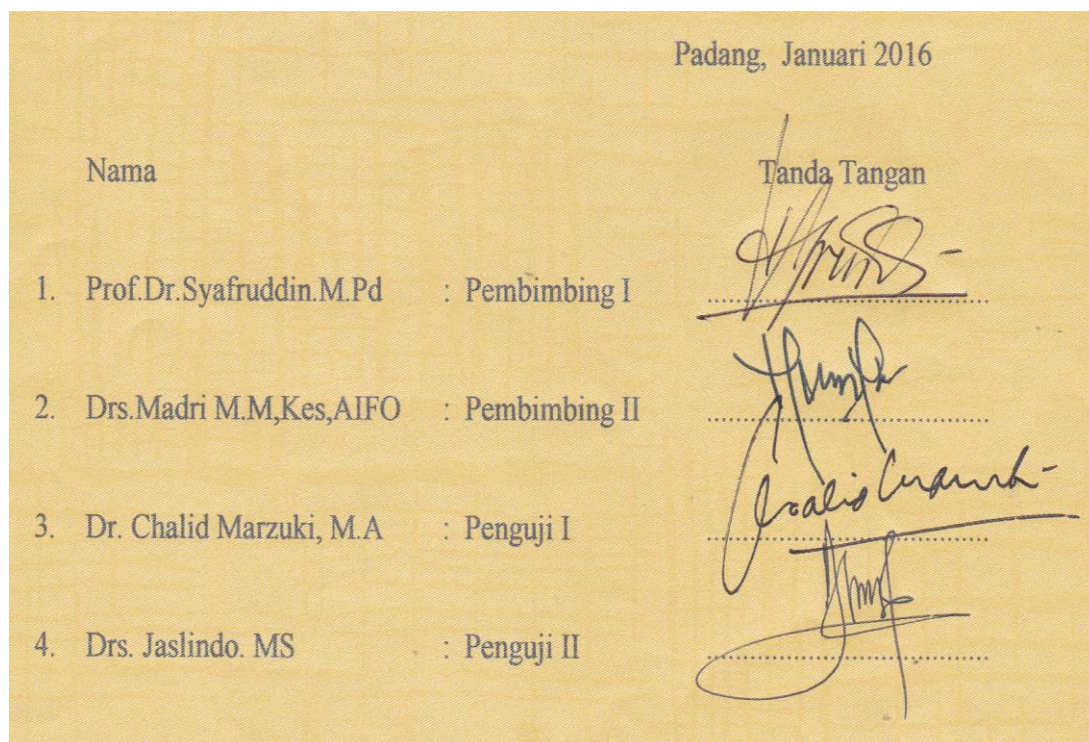 Padang, Januari 2016
Nama Tanda Tangan
1. Prof.Dr.Syafruddin.M.Pd : Pembimbing I
2. Drs.Madri M.M,Kes,AIFO : Pembimbing II
3. Dr. Chalid Marzuki, M.A : Penguji I
4. Drs. Jaslindo. MS : Penguji II